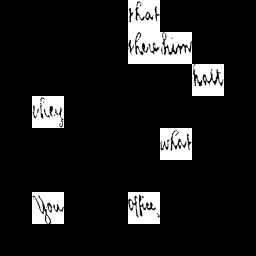 that
there him
halt
they
what
You office,